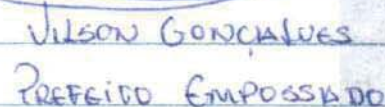 VILSON GONÇALVES
PREFEITO EMPOSSADO